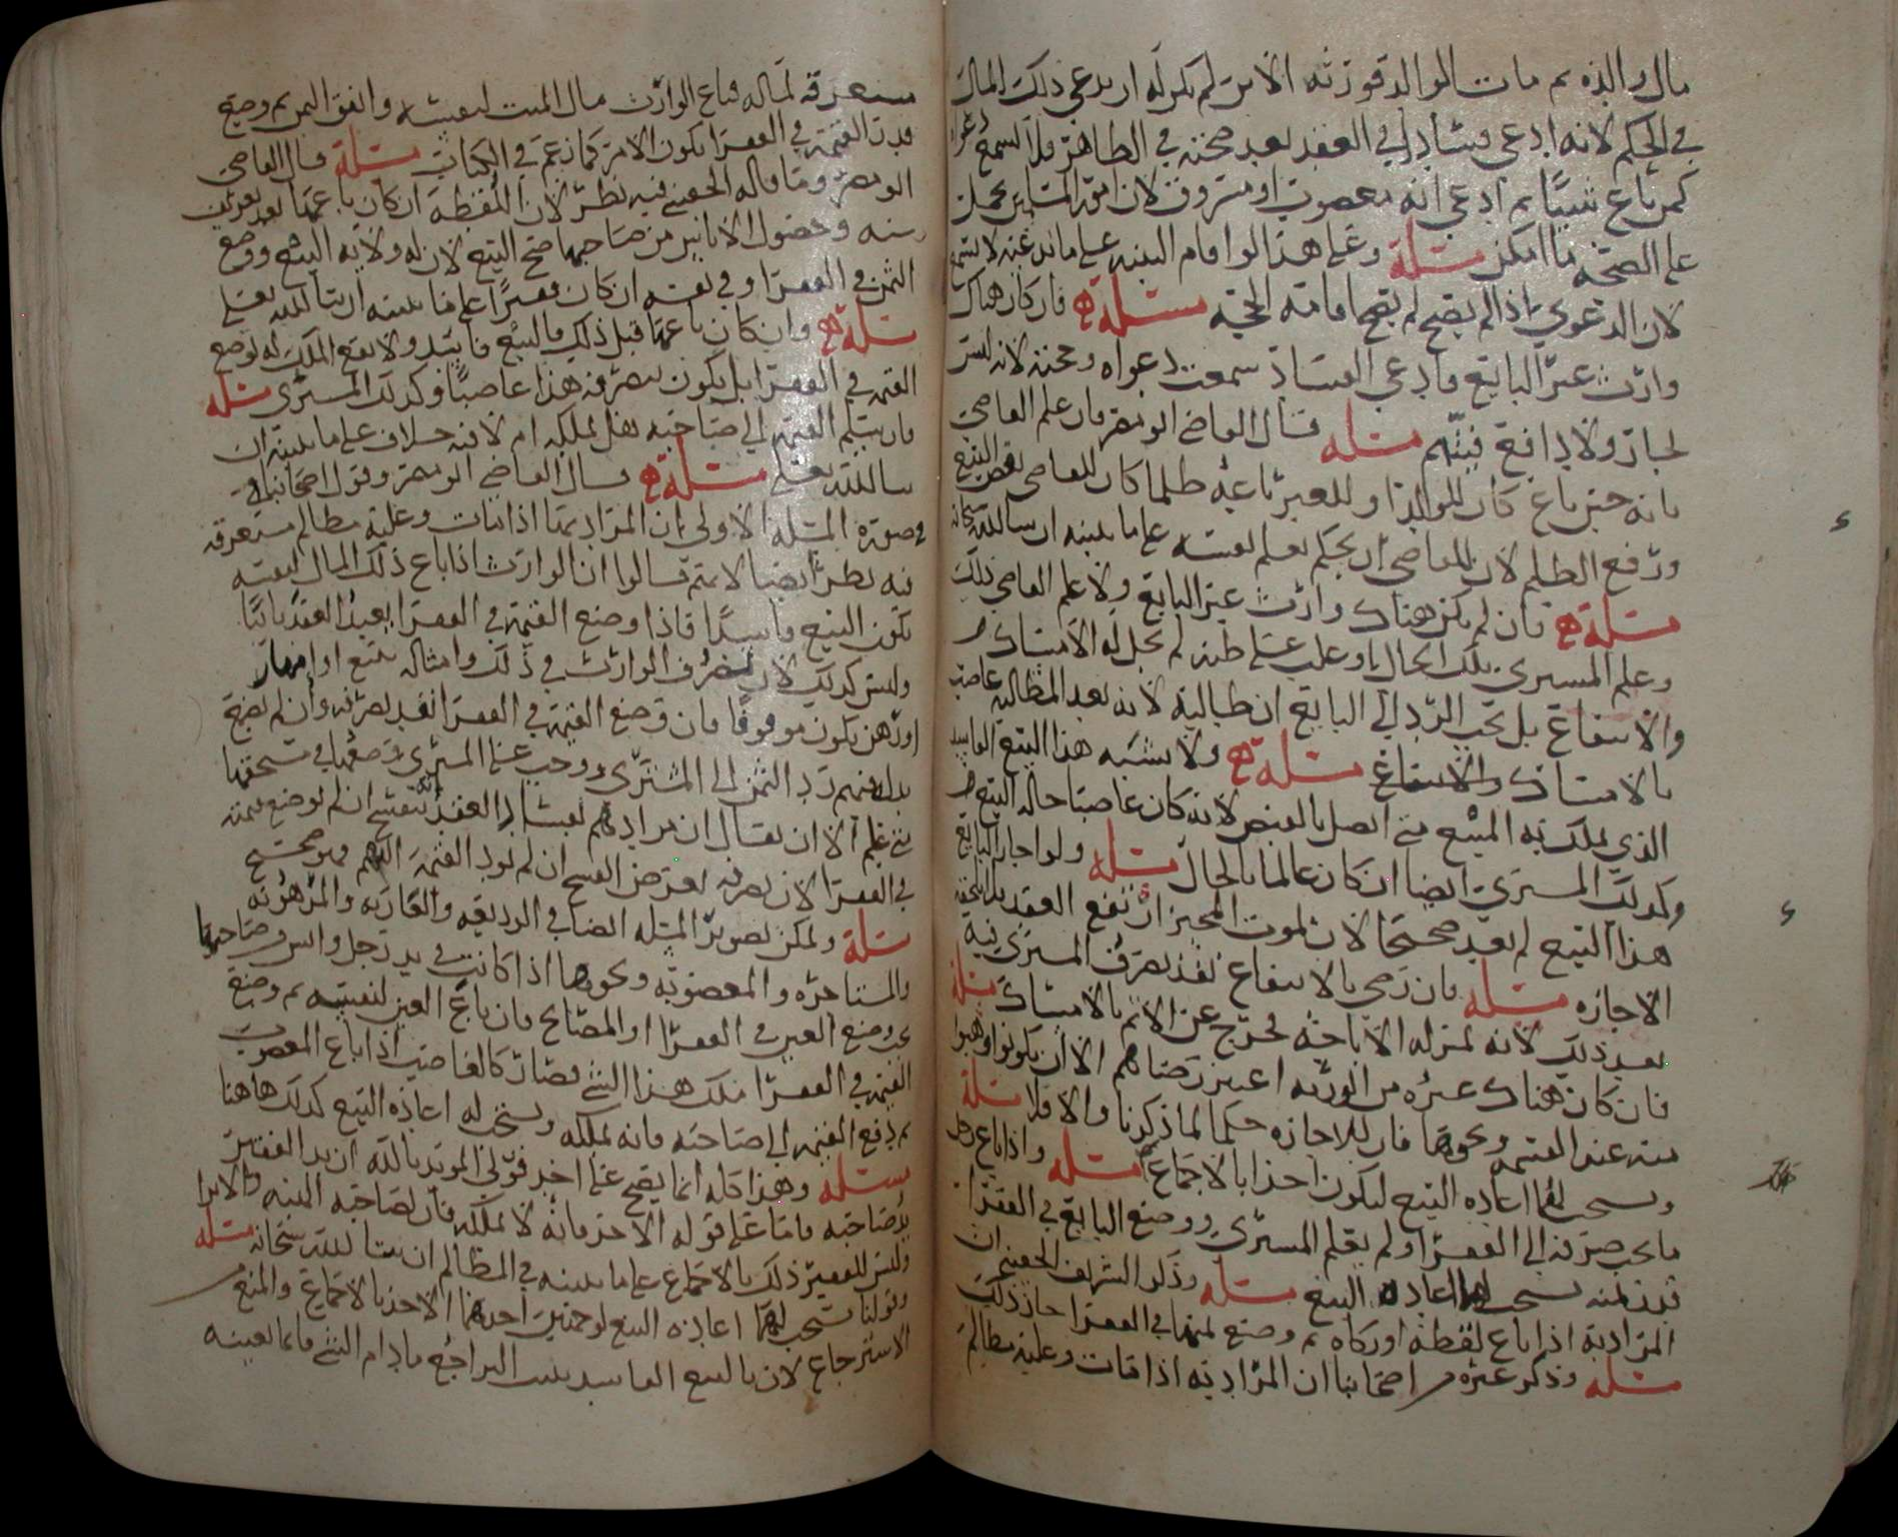 مال والده ثم مات الوالد فورثه الابن لم يكن له ان يدعي ذلك المال
في الحكم لانه ادعى فساد في العقد بعد صحته في الظاهر فلا تسمع دعواه
كمن باع شيئا ثم ادعى انه مغصوب او مسروق لان امور المسلمين تحمل
على الصحة ما امكن مسئلة وعلى هذا لو اقام البينة على ما ندعيه لا تسمع
لان الدعوى اذا لم يصح لم يصح اقامة الحجة مسئلة فان كان هناك
وارث غير البايع فادعى الفساد سمعت دعواه وحجته لانه ليس
ولا دافع بينهم مسئلة قال القاضي ابو مضر فان علم القاضي
بانه حين باع كان للوالد او للغير باعه ظلما كان للقاضي نقض البيع
ورفع الظلم لان للقاضي ان يحكم بعلم نفسه على ما نبينه ان شا الله سبحانه
مسئلة فان لم يكن هناك وارث غير البايع ولا علم القاضي بذلك
وعلم المشتري بتلك الحال او غلب على ظنه لم يحل له الامساك
والانتفاع بل يجب الرد الى البايع ان طالبه لانه بعد المطالبة غاصب
بالامساك والانتفاع مسئلة ولا يشبه هذا البيع الفاسد
الذي يملك به المبيع متى اتصل بالقبض لانه كان غاصبا حالة البيع
وكذلك المشتري ايضا ان كان عالما بالحال مسئلة ولو اجاز البايع
هذا البيع لم يعد صحيحا لان لموت المجيز ارتفع العقد
الاجازه مسئلة فان رضي بالانتفاع نفذ تصرف المشتري فيه
بعد ذلك لانه بمنزلة الاباحة يخرج عن الاثم بالامساك مسئلة
فان كان هناك غيره من الورثة اعتبر رضاهم الا ان يكونوا وهبوا
منه عند القسمة ونحوها فان للاجازه حكما لما ذكرنا والا فلا مسئلة
ويستحب لهما اعادة البيع ليكون اخذا بالاجماع مسئلة واذا باع رجل
ما يجب صرفه الى الفقرا ولم يعلم المشتري ووضع البايع في الفقرا
قدر ثمنه يستحب لهما اعادة البيع مسئلة وذكر الشريف الحسني ان
المراد به اذا باع لقطة او زكاه ثم وضع ثمنها في الفقرا جاز ذلك
مسئلة وذكر غيره من اصحابنا ان المراد به اذا مات وعليه مظالم
مستغرقة لماله فباع الوارث مال الميت لنفسه وانفق الثمن ثم وضع
قدر القيمة في الفقرا يكون الامر كما زعم في الكتاب مسئلة قال القاضي
ابو مضر وما قاله الحسني فيه نظر لان اللقطة ان كان باعها بعد تعريف
سنه وحصول الاياس من صاحبها صح البيع لان له ولاية البيع ووضع
الثمن في الفقرا وفي نفسه ان كان فقيرا على ما نبينه ان شا الله تعالى
مسئلة وان كان باعها قبل ذلك فالبيع فاسد ولا يقع الملك له بوضع
القيمة في الفقرا بل يكون بتصرفه هذا غاصبا وكذلك المشتري مسئلة
فان سلم القيمة الى صاحبه هل يملكه ام لا فيه خلاف على ما نبينه ان
شا الله تعالى مسئلة قال القاضي ابو مضر وقول اصحابنا
في صورة المسئلة الاولى ان المراد بها اذا مات وعليه مظالم مستغرقة
فيه نظر ايضا لانهم قالوا ان الوارث اذا باع ذلك المال لنفسه
يكون البيع فاسدا فاذا وضع القيمة في الفقرا يعيد العقد ثانيا
وليس كذلك لان تصرف الوارث في ذلك وامثاله ببيع او امهار
او رهن يكون موقوفا فان وضع القيمة في الفقرا نفذ تصرفه وان لم يضع
رد الثمن الى المشتري ووجب على المشتري وضعها في مستحقها
متى علم الا ان يقال ان مرادهم بفساد العقد انه ينفسخ ان لم يوضع ثمنه
في الفقرا لان تصرفه بعرض الفسخ ان لم يود القيمة اليهم وهو صحيح
مسئلة ويمكن تصوير المسئلة ايضا في الوديعة والعارية والمرهونة
والمستاجره والمغصوبة ونحوها اذا كانت في يد رجل وايس من صاحبها
يجب وضع العين في الفقرا او المصالح فان باع العين لنفسه ثم وضع
القيمة في الفقرا ملك هذا الشي فصار كالغاصب اذا باع المغصوب
ثم دفع القيمة الى صاحبه فانه يملكه ويستحب له اعادة البيع كذلك هاهنا
مسئلة وهذا كله انما يصح على احد قولي المويد بالله ان يد الفقير
يد صاحبه فاما على قوله الاخر فانه لا يملكه فان لصاحبه البينه والابرا
وليس للفقير ذلك بالاجماع على ما نبينه في المظالم ان شا الله سبحانه مسئلة
وقولنا يستحب لهما اعادة البيع لوجهين احدهما الاخذ بالاجماع والمنع
الاسترجاع لان بالبيع الفاسد يثبت التراجع ما دام الشي قائما بعينه